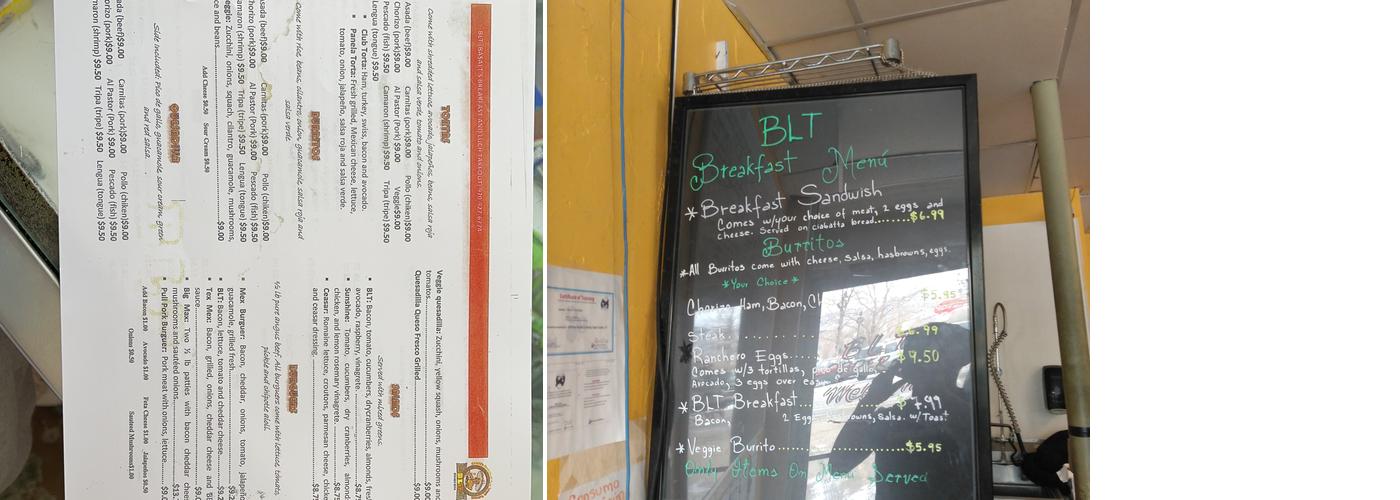 BLT (BASALT'S BREAKFAST AND LUCH TAKEOUT) 970-927-6776
TORTAS
Come with shredded lettuce, avocado, jalapeños, beans, salsa roja
and salsa verde, tomato and onions.
Asada (beef)$9.00 Carnitas (pork)$9.00 Pollo (chiken)$9.00
Chorizo (pork)$9.00 Al Pastor (Pork) $9.00 Veggie$9.00
Pescado (fish) $9.00 Camaron (shrimp) $9.50 Tripa (tripe) $9.50
Lengua (tongue) $9.50
Club Torta: Ham, turkey, swiss, bacon and avocado.
Panela Torta: Fresh grilled, Mexican cheese, lettuce,
tomato, onion, jalapeño, salsa roja and salsa verde.
BURRITOS
Come with rice, beans, cilantro, onion, guacamole, salsa roja and
salsa verde.
Asada (beef)$9.00 Carnitas (pork)$9.00 Pollo (chiken)$9.00
Chorizo (pork)$9.00 Al Pastor (Pork) $9.00 Pescado (fish) $9.00
Camaron (shrimp) $9.50 Tripa (tripe) $9.50 Lengua (tongue) $9.50
Veggie: Zucchini, onions, squach, cilantro, guacamole, mushrooms,
rice and beans. $9.00
Add Cheese $0.50 Sour Cream $0.50
QUESADILLAS
Side included: Pico de gallo, guacamole, sour cream, green
and red salsa.
Asada (beef)$9.00 Carnitas (pork)$9.00 Pollo (chiken)$9.00
Chorizo (pork)$9.00 Al Pastor (Pork) $9.00 Pescado (fish) $9.00
Camaron (shrimp) $9.50 Tripa (tripe) $9.50 Lengua (tongue) $9.50
Veggie quesadilla: Zucchini, yellow squash, onions, mushrooms and
tomatoes
Quesadilla Queso Fresco Grilled
SALADS
Served with mixed greens.
BLT: Bacon, tomato, cucumbers, drycranberries, almonds,
avocado, raspberry, vinagrete
Sunshine: Tomato, cucumbers, dry cranberries,
chicken, and lemon rosemary vinagrete
Ceasar: Romaine lettuce, croutons, parmesan cheese,
and ceasar dressing
BURGUERS
½ lb pure angus beef. All burguers come with lettuce, tomato,
pickle and chipotle aioli.
Mex Burguer: Bacon, cheddar, onions, tomato,
guacamole, grilled fresh
BLT: Bacon, lettuce, tomato and cheddar cheese
Tex Mex: Bacon, grilled, onions, cheddar cheese and
sauce
Big Max: Two ½ lb patties with bacon cheddar
mushrooms and sautéed onions
Pull Pork Burguer: Pork meat with onions, lettuce
Add Bacon $1.00 Avocado $1.00 Feta Cheese $1.00 Jalapeños $0.50
Onions $0.50 Sauteed Mushrooms $1.00
BLT
Breakfast Menú
*Breakfast Sandwish
Comes w/your choice of meat, 2 eggs and
cheese. Served on ciabatta bread.......$6.99
Burritos
*All Burritos come with cheese, salsa, hasbrowns, eggs.
*Your Choice*
Chorizo, Ham, Bacon, $5.95
Steak......... $6.99
*Ranchero Eggs..... $9.50
Comes w/3 tortillas, pico de gallo,
Avocado, 3 eggs over easy
*BLT Breakfast........ $7.99
Bacon, 2 Eggs, salsa. w/Toast
*Veggie Burrito.................$5.95
Only Items On Menu Served
Certificate of Training
Consumo